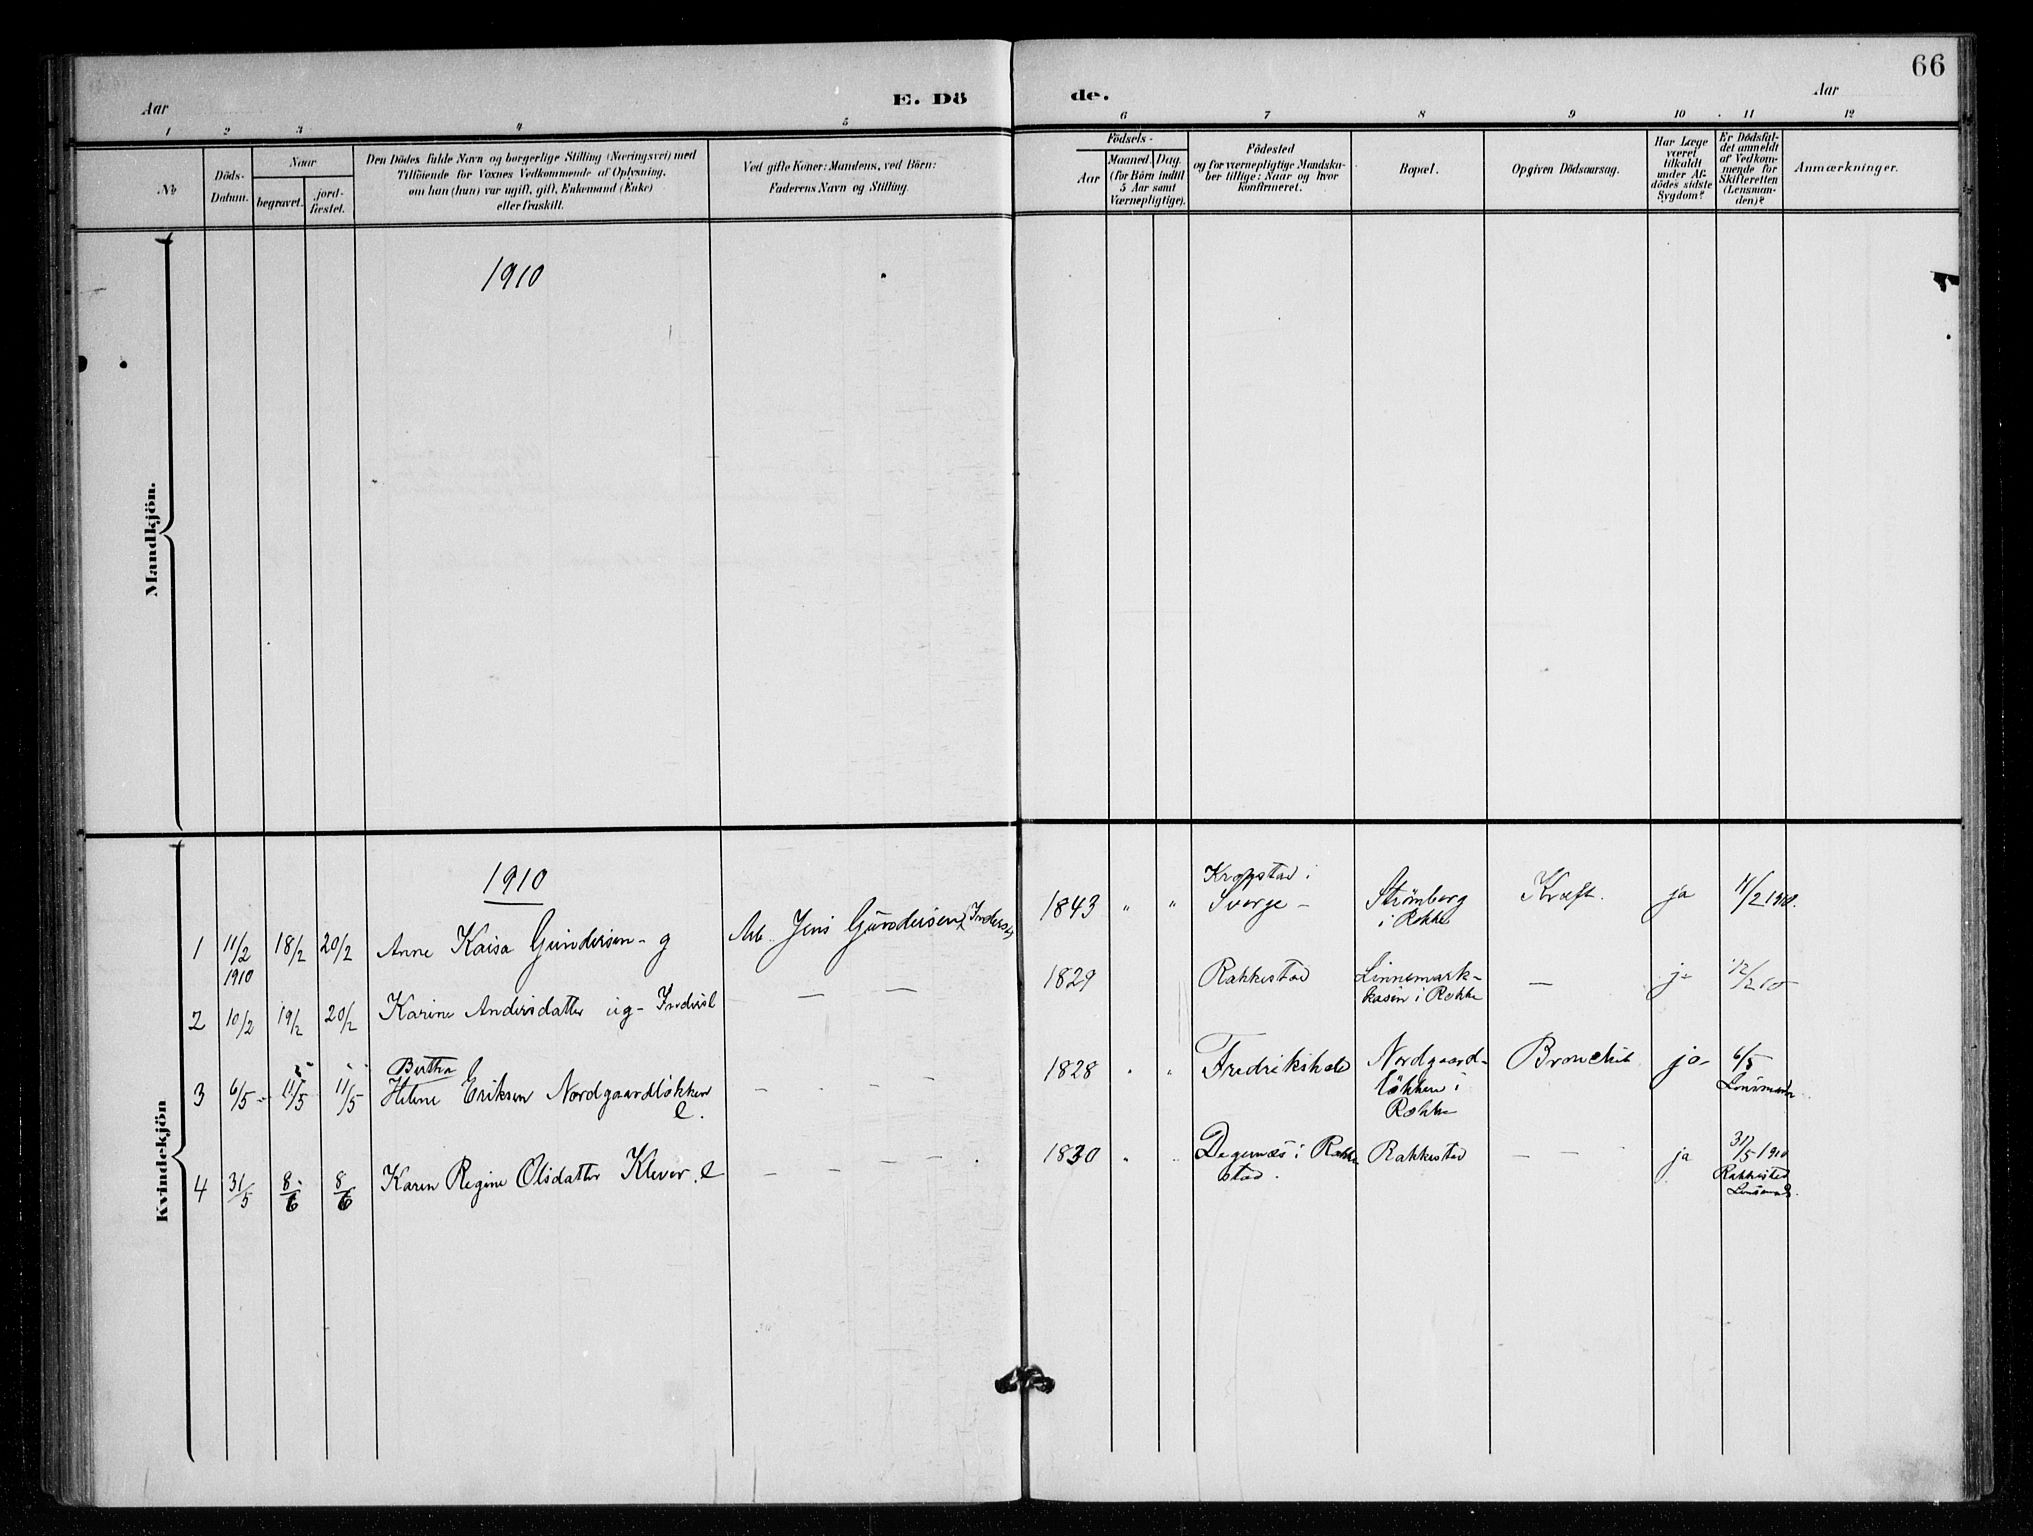 66
Aar
E. Dö
de.
Aar
1 2 3 4 5 6 7 8 9 10 11 12
No
Döds-
Datum.
Naar
begravet.
jord-
fæstet.
Den Dödes fulde Navn og borgerlige Stilling (Næringsvei) med
Tilföiende for Voxnes Vedkommende af Oplysning,
om han (hun) var ugift, gift, Enkemand (Enke)
eller fraskilt.
Ved gifte Koner: Mandens, ved Börn:
Faderens Navn og Stilling.
Födsels-
Aar
Maaned. Dag.
(for Börn indtil
5 Aar samt
Værnepligtige).
Födested
og for værnepligtige Mandska-
ber tillige: Naar og hvor
konfirmeret.
Bopæl.
Opgiven Dödsaarsag.
Har Læge
været
tilkaldt
under Af-
dödes sidste
Sygdom?
Er Dödsfal-
det anmeldt
af Vedkom-
mende for
Skifteretten
(Lensman-
den)?
Anmærkninger.
Mandkjön.
1910
Kvindekjön
1910
1 11/2 1910 18/2 20/2 Anne Kaisa Gundersen - g Arb. Jens Gundersen 1843 " "
Sverge - Strømberg
i Rokke
Kræft. ja 11/2 1910.
2 10/2 19/2 20/2 Karine Andersdatter ug - 1829 Rakkestad Linnemark-
kasen i Rokke
— ja 12/2 10
Bertha
3 6/5 11/5 11/5 Helene Eriksen Nordgaardløkken
e.
1828 " " Fredrikshald Nordgaard-
løkken i
Rokke
Bronchit ja 6/5
Lensmanden
4 31/5 8/6 8/6 Karen Regine Olsdatter Klever. e 1830 " " Degernæs i Rakke
stad.
Rakkestad — — ja 31/5 1910
Rakkestad